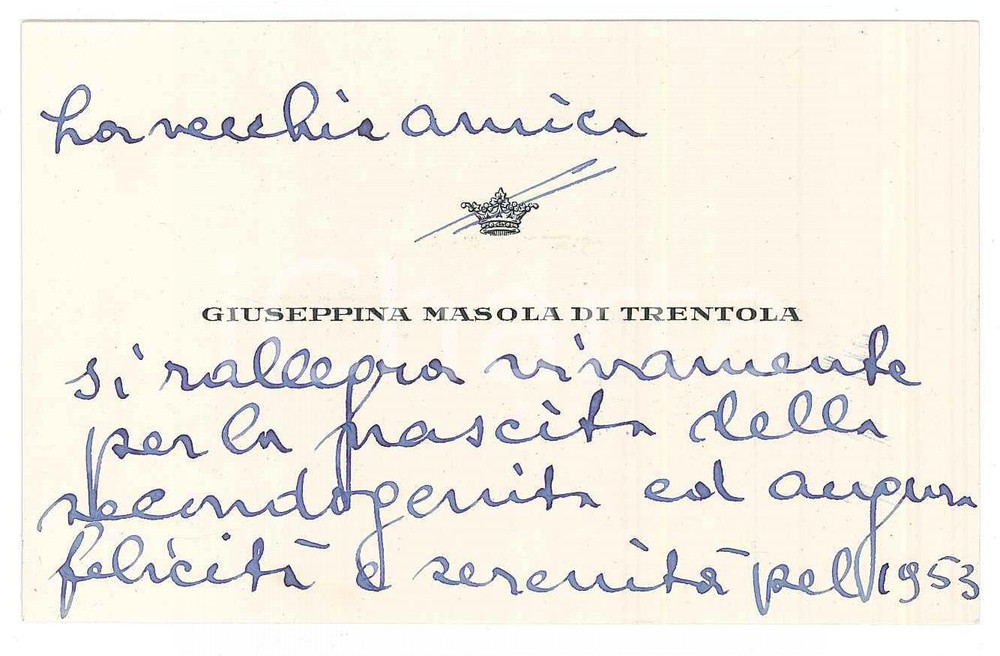 La vecchia amica
GIUSEPPINA MASOLA DI TRENTOLA
si rallegra vivamente
per la nascita della
secondogenita ed augura
felicità e serenità pel 1953